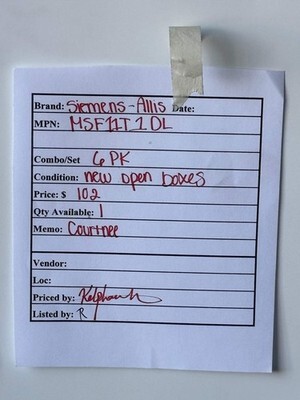 Brand: Siemens-Allis Date:
MPN: MSF1IT1DL
Combo/Set 6 PK
Condition: new open boxes
Price: $ 102
Qty Available: 1
Memo: Courtnee
Vendor:
Loc:
Priced by:
Listed by: R